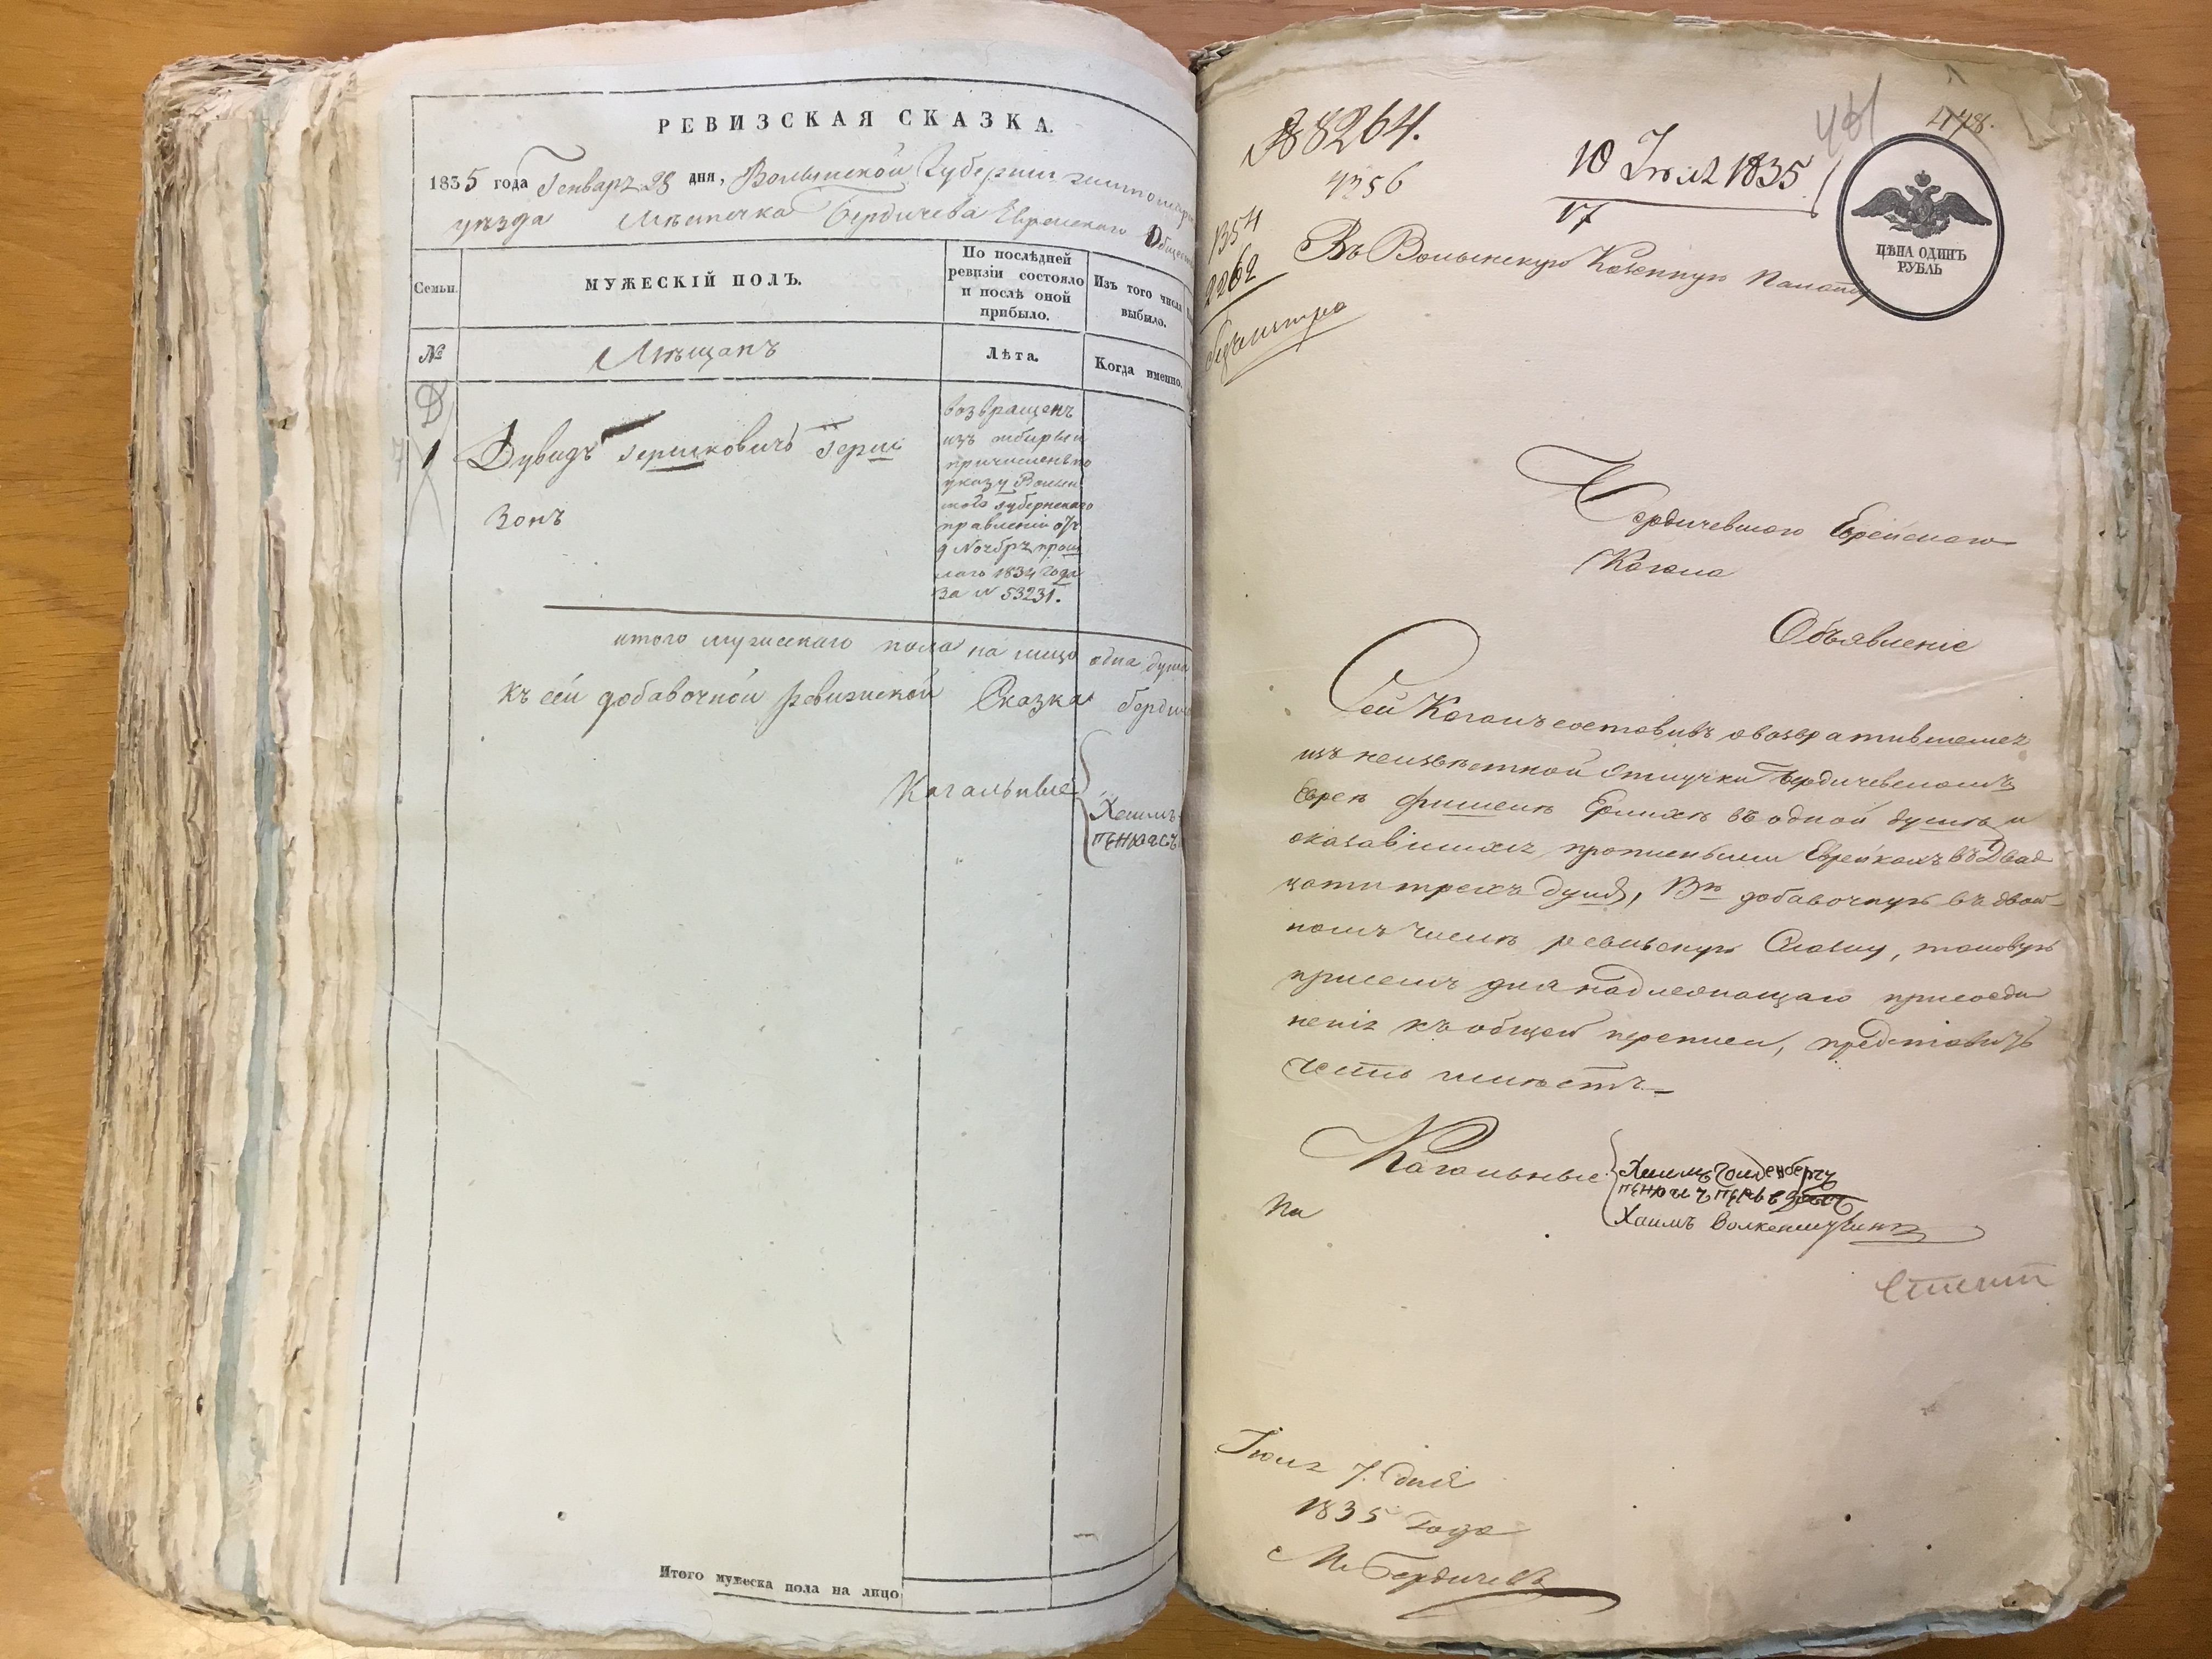 РЕВИЗСКАЯ СКАЗКА.
1835 года Генваря 28 дня, Волынской Губернии Житомирск
уезда Мѣстечка Бердичева Еврейскаго Общест
Семьи.
МУЖЕСКІЙ ПОЛЪ.
По послѣдней
ревизіи состояло
и послѣ оной
прибыло.
Изъ того числа
выбыло.
№
Мѣщанъ
Лѣта.
Когда именно.
1
Дувидъ Гершковичъ Герш
зонъ
возвращенъ
изъ сибири и
причисленъ по
указу Волын
скаго губернскаго
правленія отъ
9 Ноября прош
лаго 1834 года
за № 53231.
итого мужескаго пола на лицо одна душа
къ сей добавочной ревизской Сказкѣ бердич
Кагальные
Хаимъ
пѣнхасъ
Итого мужеска пола на лицо
№ 8264.
4356
10 Іюля 1835
17
478.
1354
2262
ЦѢНА ОДИНЪ
РУБЛЬ
Въ Волынскую Казенную Палату
Бердичевскаго Еврейскаго
Кагала
Объявленіе
Сей Кагалъ составивъ о возвратившемся
изъ неизвѣстной отлучки Бердичевскомъ
Евреѣ Фишелѣ въ одной душѣ и
оказавшихся прописными Евреяхъ въ Двад
цати трехъ душъ, добавочную въ двой
номъ числѣ ревизскую Сказку, таковую
присемъ для надлежащаго присоеди
ненія къ общей переписи, представить
честь имѣетъ
Кагальные
Хаимъ Голденбергъ
Хаимъ Волкенштейнъ
Іюля 7. дня
1835 года
М. Бердичевъ